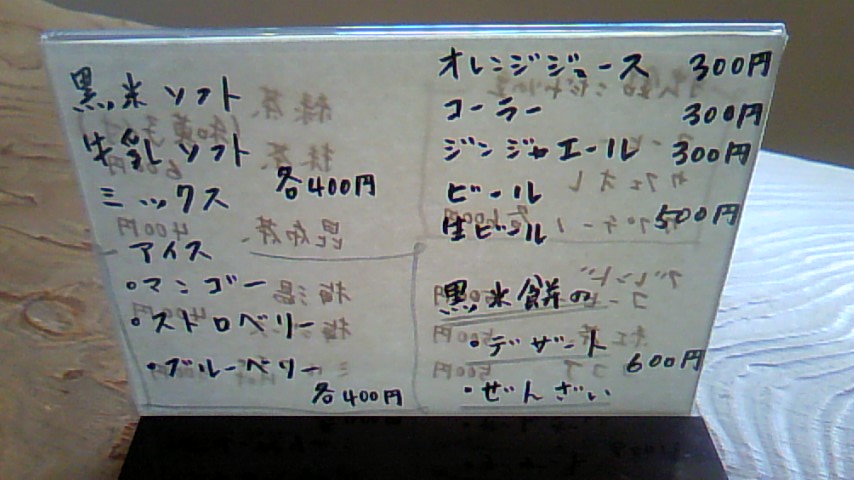 黒米ソフト
牛乳ソフト
ミックス 各400円
アイス
・マンゴー
・ストロベリー
・ブルーベリー
各400円
オレンジジュース 300円
コーラー 300円
ジンジャエール 300円
ビール
生ビール 500円
黒米餅の
・デザート
600円
・ぜんざい